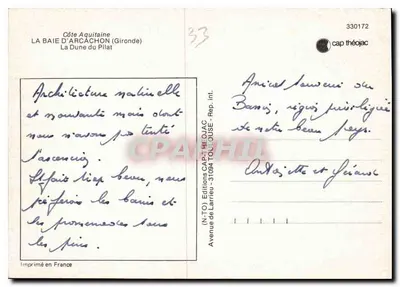 Côte Aquitaine
LA BAIE D'ARCACHON (Gironde)
La Dune du Pilat
33
330172
cap théojac
Architecture naturelle
et mouvante mais dont
nous n'avons pas tenté
l'ascension.
Il fait trop beau, nous
préférons les bains et
les promenades sous
les pins.
Amical souvenir du
Bassin, région privilégiée
de notre beau pays.
Antoinette et Gérard
CPARPHIL
(N-TO) Editions CAP-THEOJAC
Avenue de Larrieu - 31094 TOULOUSE - Rep. int.
Imprimé en France